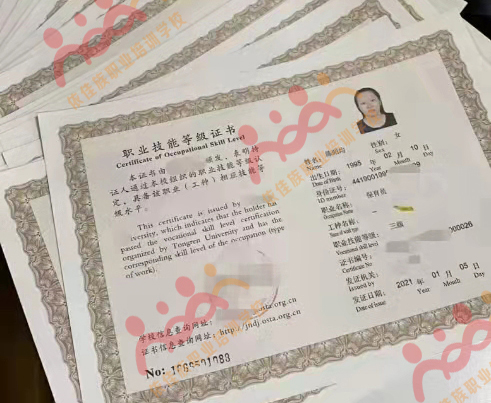 职业技能等级证书
Certificate of Occupational Skill Level
本证书由 颁发，表明持
证人通过本校组织的职业技能等级认
定，具备该职业（工种）相应技能等
级水平。
This certificate is issued by
iversity, which indicates that the holder has
passed the vocational skill level certification
organized by Tongren University and has the
corresponding skill level of the occupation (type
of work).
学校信息查询网址：
.osta.org.cn
证书信息查询网址：http://jndj.osta.org.cn
No:
姓名
性别 女
Sex
出生日期 1995 年 02 月 10 日
Date of Birth Year Month Day
身份证号
ID number
职业名称 保育员
Occupation Name
工种名称
职业技能等级 三级
Vocational skill level
证书编号 000026
Certificate No.
发证机关
Issued by
发证日期 2021 年 01 月 05 日
Date of Issue Year Month Day
职业培训学校